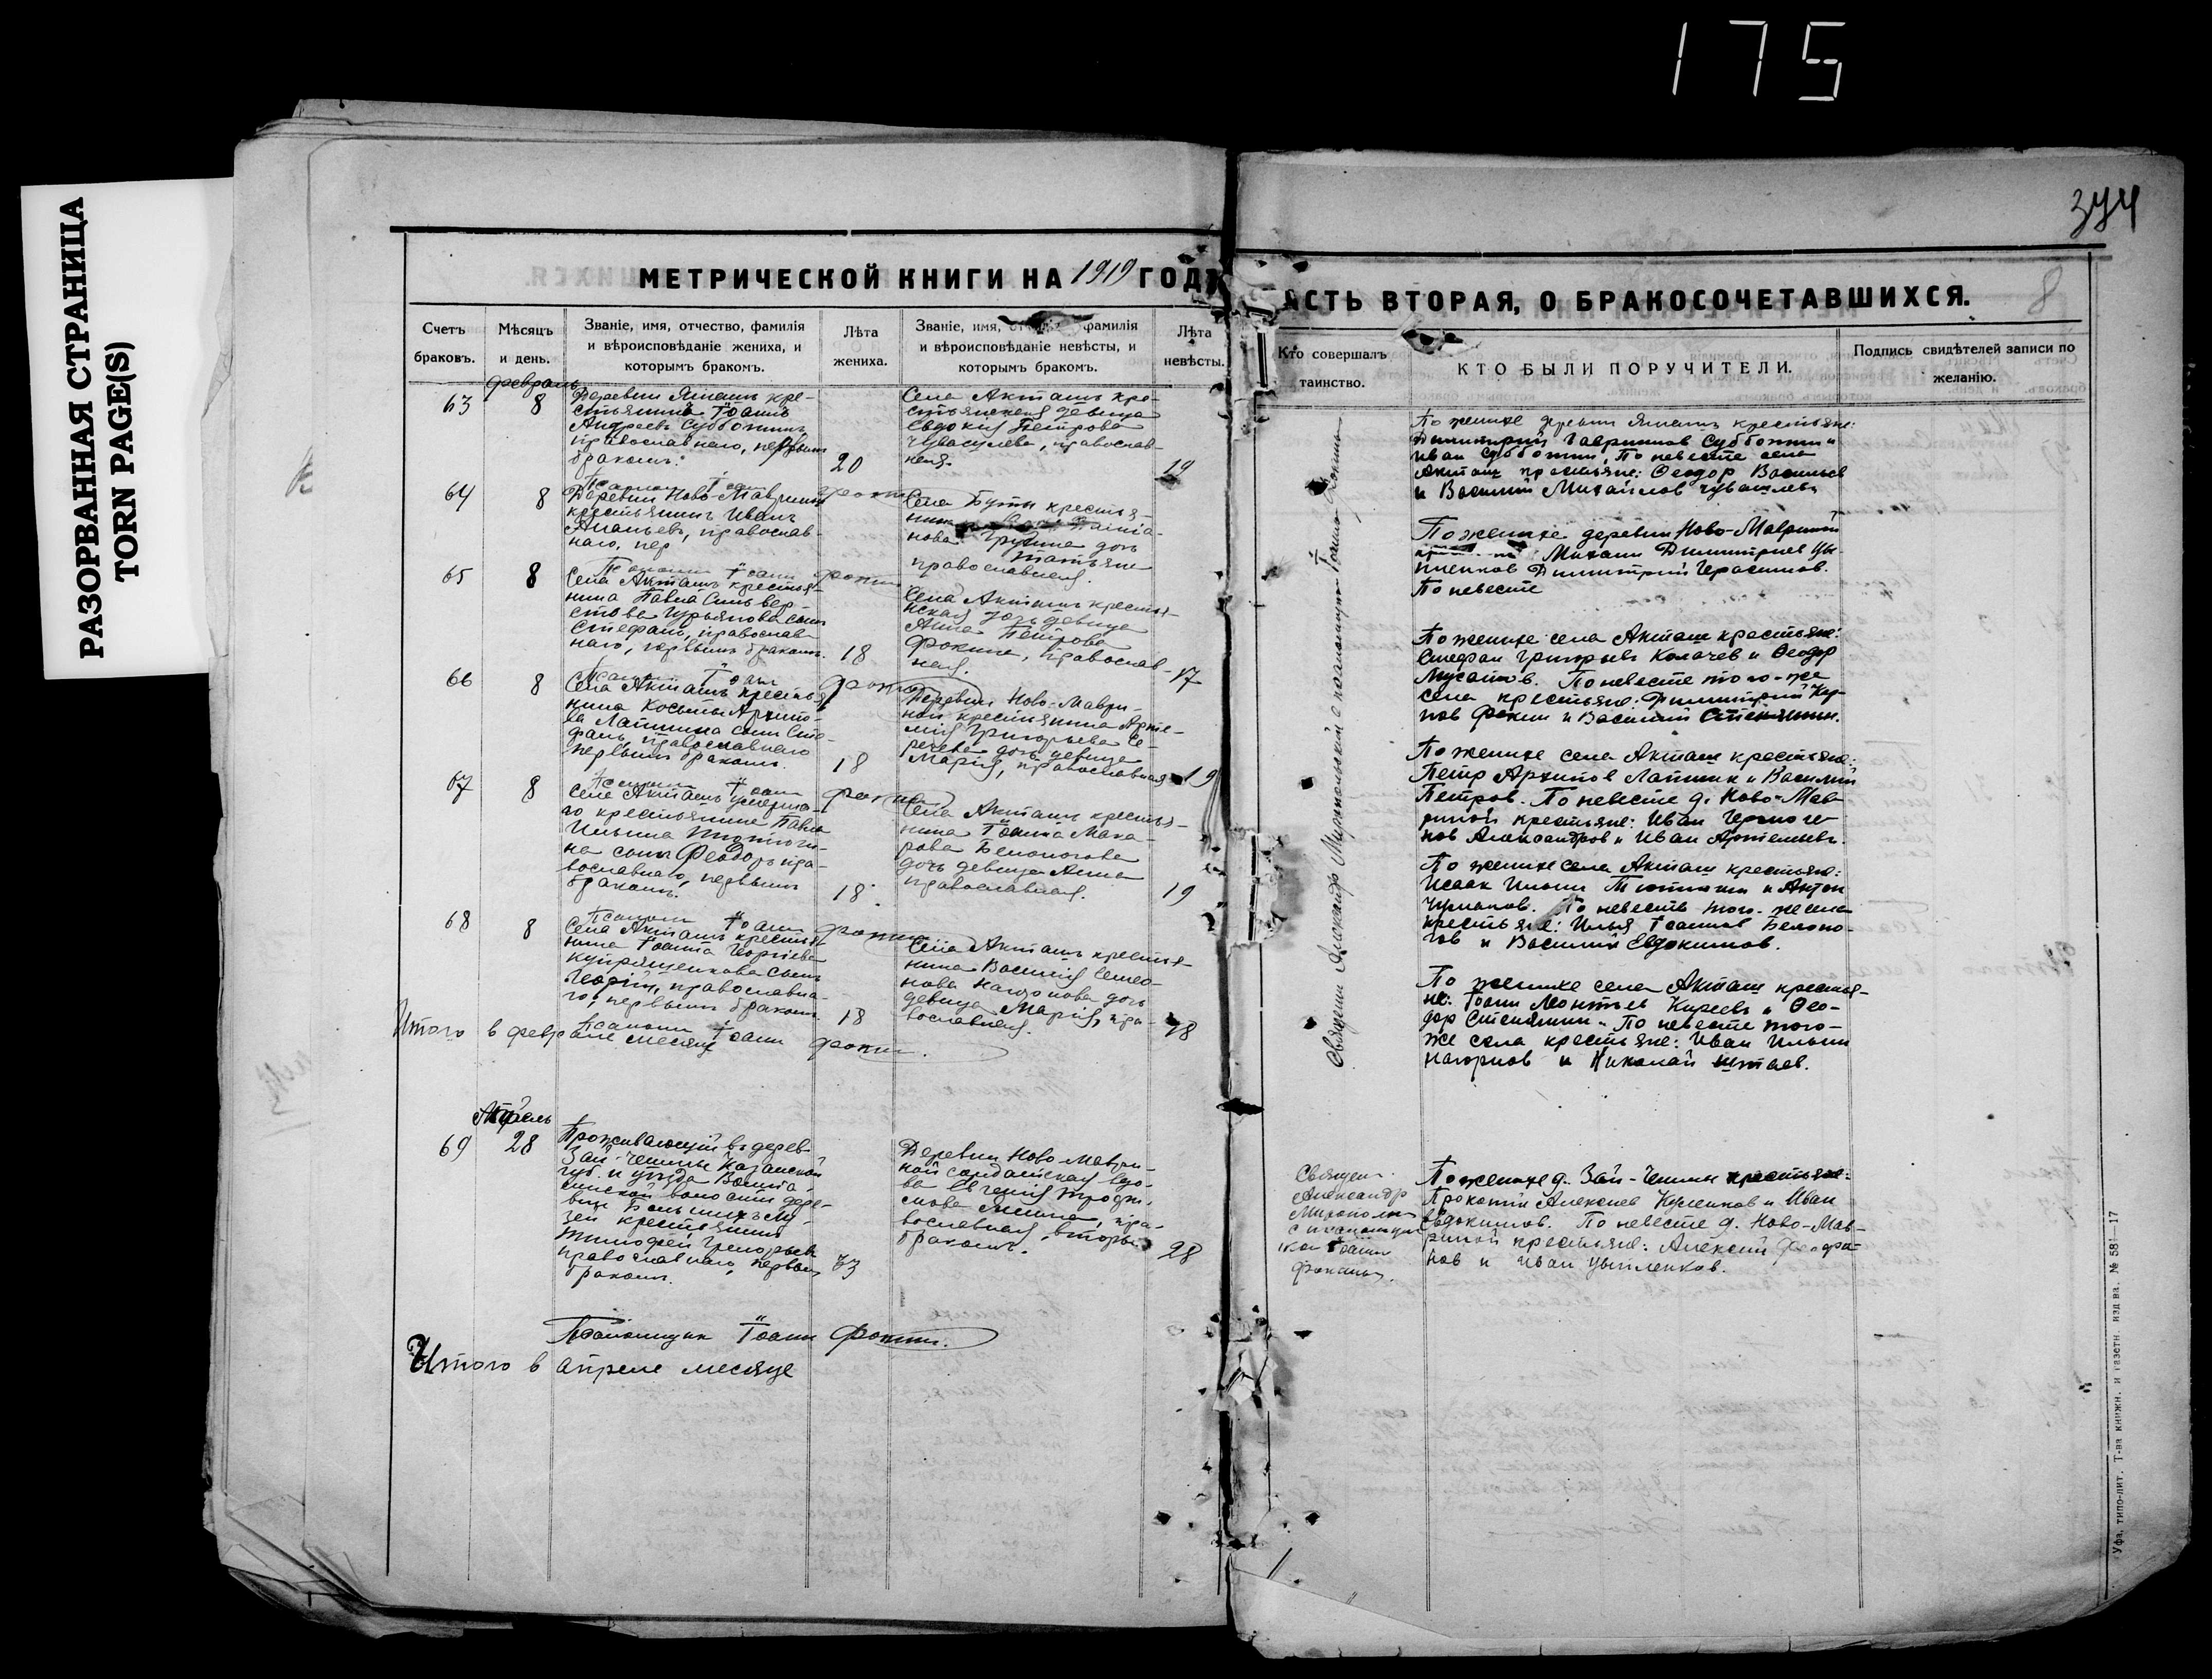 175
РАЗОРВАННАЯ СТРАНИЦА
TORN PAGE(S)
344
МЕТРИЧЕСКОЙ КНИГИ НА 1919 ГОД
АСТЬ ВТОРАЯ, О БРАКОСОЧЕТАВШИХСЯ.
8
Счетъ
браковъ.
Мѣсяцъ
и день.
Званіе, имя, отчество, фамилія
и вѣроисповѣданіе жениха, и
которымъ бракомъ.
Лѣта
жениха.
Званіе, имя, фамилія
и вѣроисповѣданіе невѣсты, и
которымъ бракомъ.
Лѣта
невѣсты.
Кто совершалъ
таинство.
КТО БЫЛИ ПОРУЧИТЕЛИ.
Подпись свидѣтелей записи по
желанію.
февраль
63
8
Деревни Ямашъ кре-
стьянинъ Іоаннъ
Андреевъ Субботинъ,
православнаго, первымъ
бракомъ.
20
Села Акташъ кре-
стьянская девица
Евдокия Петрова
Чувашлева, православ-
ная.
19
По женихе деревни Ямашъ крестьяне:
Димитрий Гавриилов Субботин и
Иван Субботин. По невесте села
Акташ крестьяне: Феодор Васильев
и Василий Михайлов Чувашлевъ
Псаломщ Іоанн Фокин
64
8
Деревни Ново-Мавриной
крестьянинъ Иванъ
Ананьевъ, православ-
наго, пер
Села Буты крестья-
нина
нова дочь
Татьяна
православная.
По женихе деревни Ново-Мавриной
Михаил Димитриев Цы-
пленков Димитрий Герасимов.
По невесте
Псаломщ Іоанн Фокин
65
8
Села Акташъ крестья-
нина Павла Сильвер-
стова Гурьянова сынъ
Стефанъ, православ-
наго, первымъ бракомъ.
18
Села Акташъ крестья-
нская дочь девица
Анна Петрова
Фокина, православ-
ная.
17
По женихе села Акташ крестьяне:
Стефан Григорьевъ Калачев и Феодор
Мусатов. По невесте того-же
села крестьяне: Димитрий Кар-
пов Фокин и Василий Стенякин.
Псаломщ Іоанн Фокин
66
8
Села Акташъ крестья-
нина Косьмы Архипо-
ва Лапшина сынъ Сте-
фанъ, православнаго
первымъ бракомъ.
18
Деревни Ново-Маври-
ной крестьянина Арте-
мия Григорьева
дочь девица
Мария, православная
19
По женихе села Акташ крестьяне:
Петр Архипов Лапшин и Василий
Петров. По невесте д. Ново-Мав-
риной крестьяне: Иван
Александров и Иван Артемьевъ.
Псаломщ Іоанн Фокин
67
8
Села Акташъ умерша-
го крестьянина Павла
Ильина Тютюги-
на сынъ Феодоръ пра-
вославнаго, первымъ
бракомъ.
18
Села Акташъ крестья-
нина Іоанна Мака-
рова Белоногова
дочь девица Анна
православная.
19
По женихе села Акташ крестьяне:
Исаак Ильин и Антон
Чумаков. По невесте того-же села
крестьяне: Илья Іоаннов Белоно-
гов и Василий Евдокимов.
Псаломщ Іоанн Фокин
68
8
Села Акташъ крестья-
нина Іоанна Георгиева
Купряшенкова сынъ
Георгий, православна-
го, первымъ бракомъ.
18
Села Акташъ крестья-
нина Василия Семео-
нова Нагорнова дочь
девица Мария, пра-
вославная.
18
По женихе села Акташ крестья-
не: Іоанн Леонтьев Киреевъ и Фео-
дор Стенякин. По невесте того-
же села крестьяне: Иван Ильин
Нагорнов и Николай
Псаломщ Іоанн Фокин.
Итого в феврале месяце
Священ Александр Миропольский с псаломщиком Іоанном Фокиным
Апрель
69
28
Проживающий въ дерев
Зай-Чишмы Казанской
губ. и уезда
волости дере-
вни
крестьянинъ
Тимофей Григорьевъ
православнаго, первым
бракомъ.
33
Деревни Ново-Маври-
ной солдатская вдо-
ва Евгения
православная, вторым
бракомъ.
28
Священ
Александр
Миропольск
с псаломщи
ком Іоанн
Фокиным.
По женихе д. Зай-Чишмы крестьяне:
Прокопий Алексеев Куленков и Иван
Евдокимов. По невесте д. Ново-Мав-
риной крестьяне: Алексей
и Иван Цыпленков.
Псаломщик Іоанн Фокин.
Итого в апреле месяце
Уфа, типо-лит. Т-ва книжн. и газетн. изд-ва. № 581—17